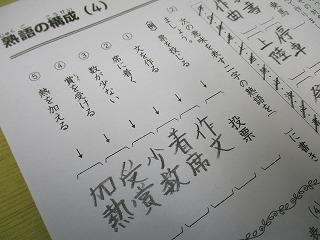 熟語の構成(4)
(2) 次の意味を表す二字の熟語を
に書き
ましょう。
(例) 票を投じる 投票
① 文を作る 作文
② 席に着く 着席
③ 数が少ない 少数
④ 賞を受ける 受賞
⑤ 熱を加える 加熱
乗馬
上陸